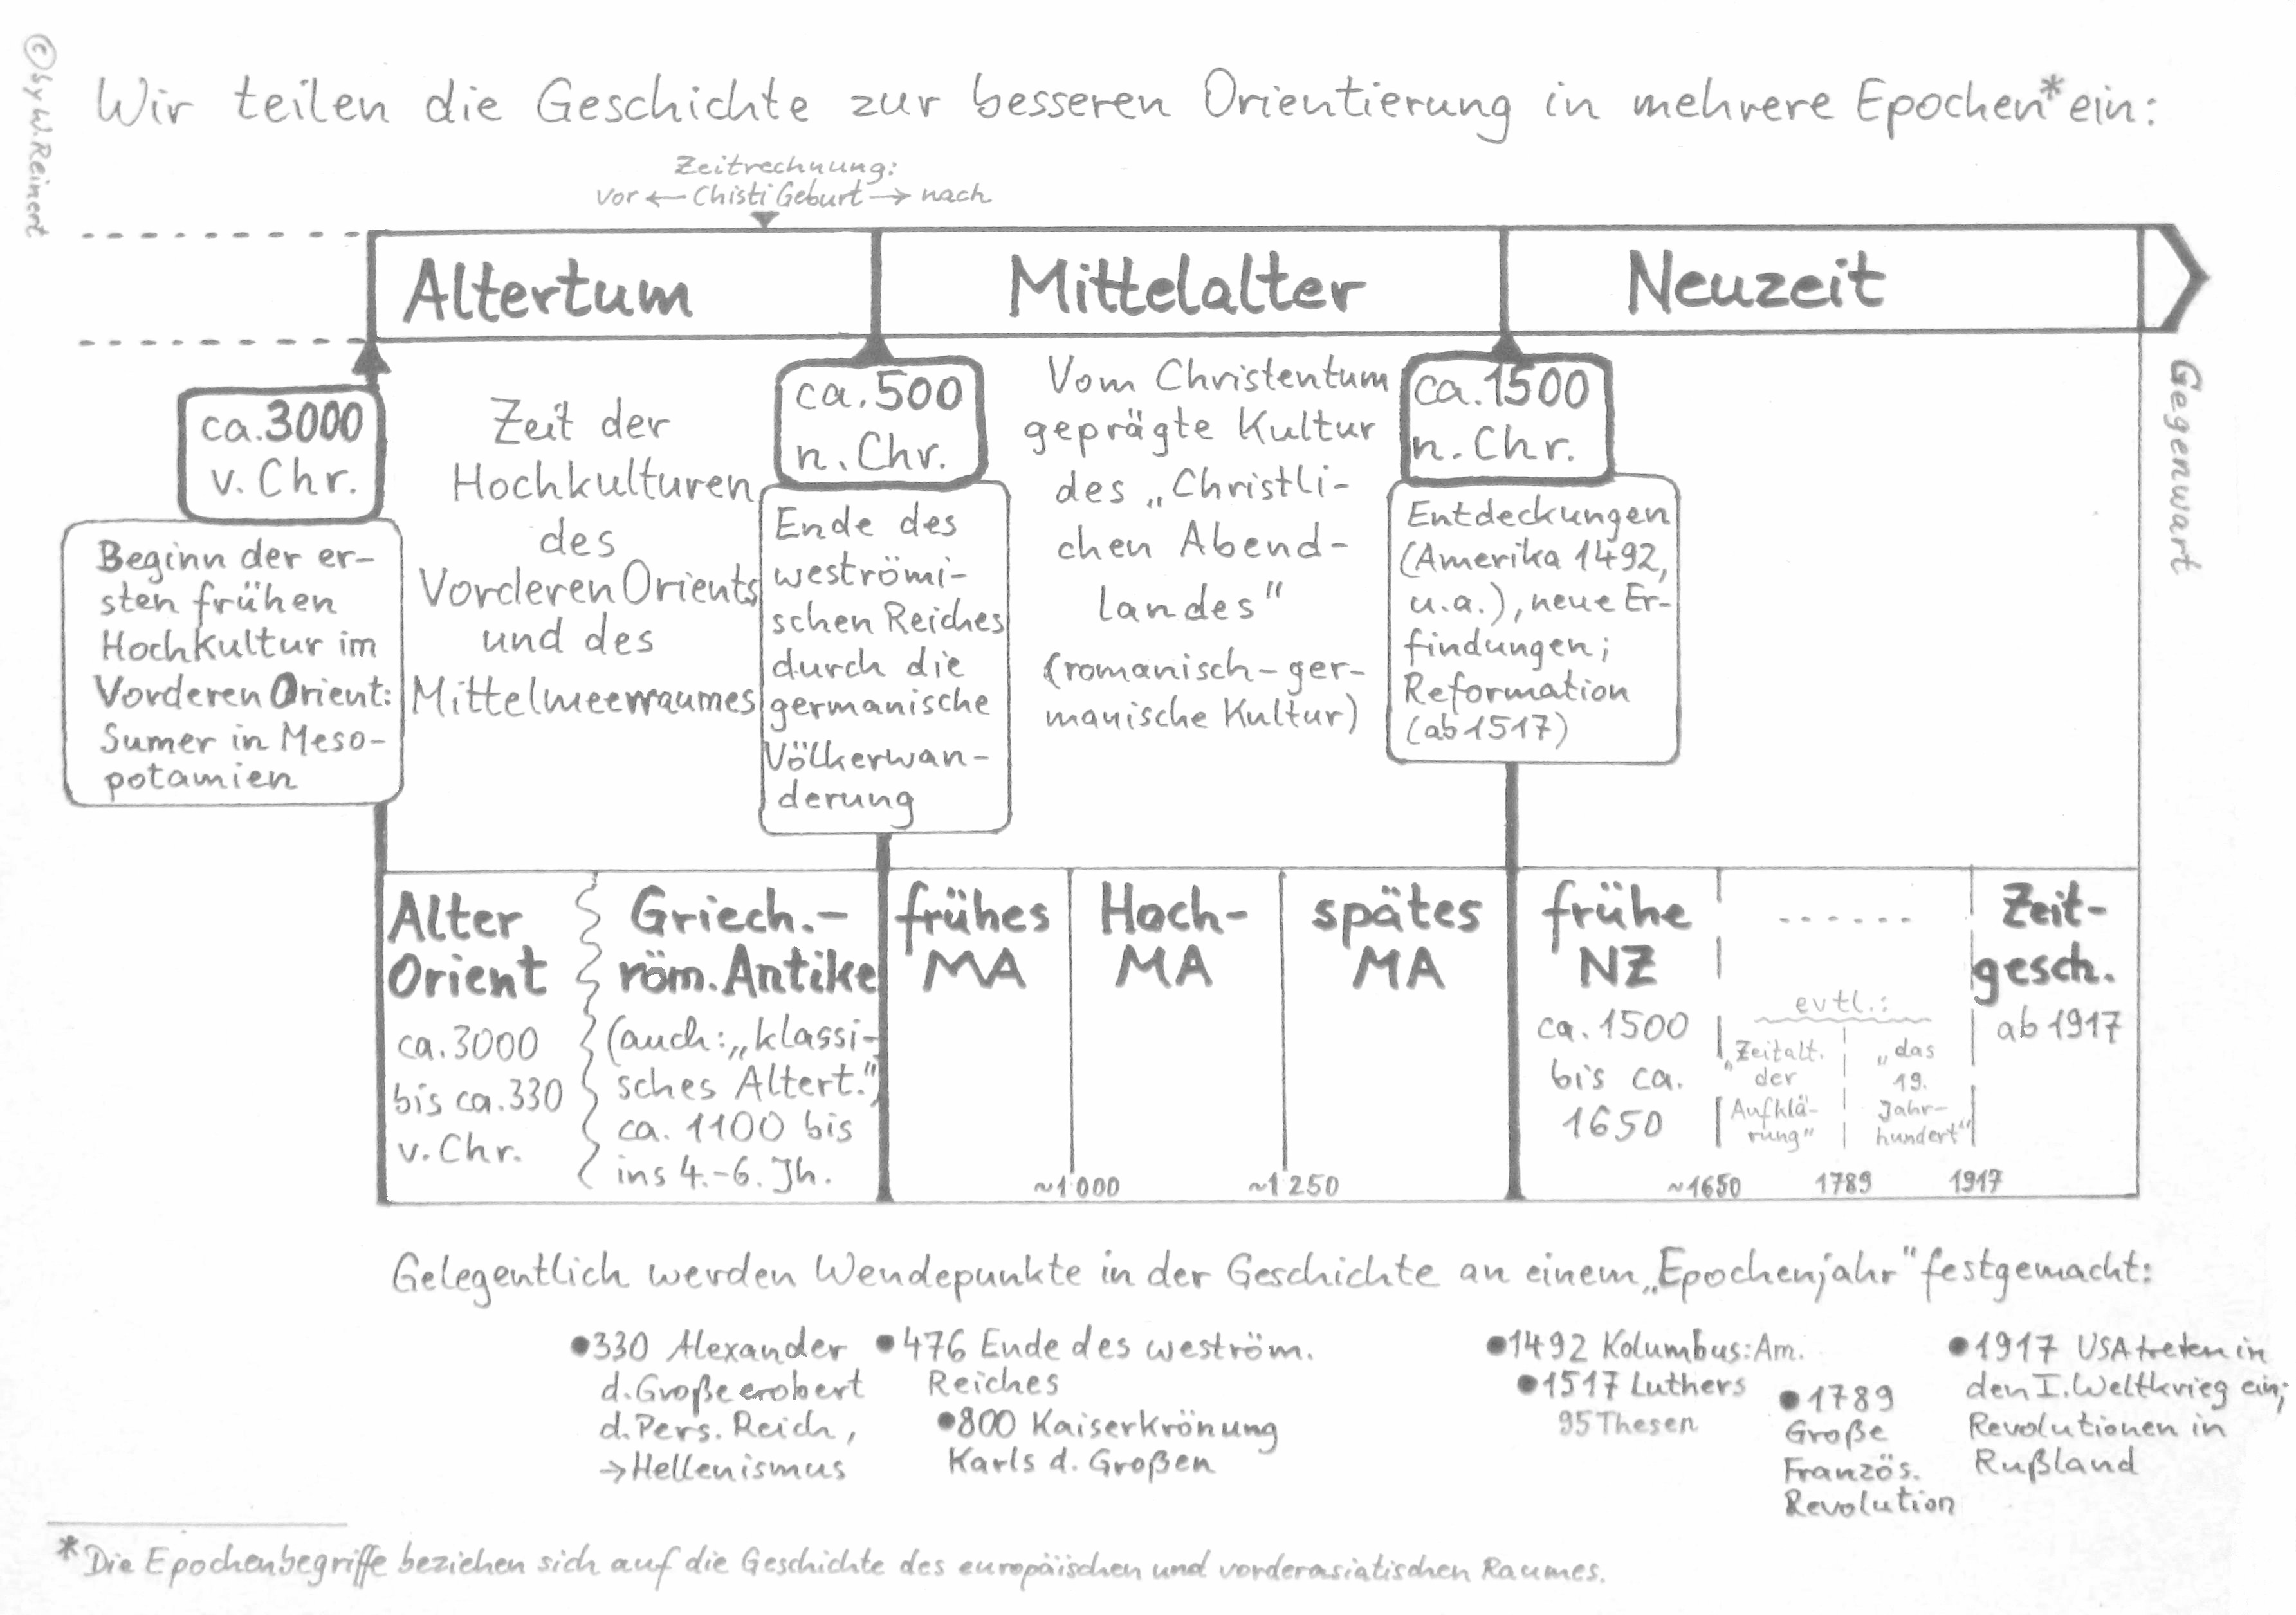 © by W. Reinert
Wir teilen die Geschichte zur besseren Orientierung in mehrere Epochen* ein:
Zeitrechnung:
vor ← Chisti Geburt → nach
Altertum
Mittelalter
Neuzeit
Gegenwart
ca. 3000
v. Chr.
Beginn der er-
sten frühen
Hochkultur im
Vorderen Orient:
Sumer in Meso-
potamien
Zeit der
Hochkulturen
des
Vorderen Orients
und des
Mittelmeerraumes
ca. 500
n. Chr.
Ende des
weströmi-
schen Reiches
durch die
germanische
Völkerwan-
derung
Vom Christentum
geprägte Kultur
des „Christli-
chen Abend-
landes"
(romanisch-ger-
manische Kultur)
ca. 1500
n. Chr.
Entdeckungen
(Amerika 1492,
u.a.), neue Er-
findungen;
Reformation
(ab 1517)
Alter
Orient
ca. 3000
bis ca. 330
v. Chr.
Griech.-
röm. Antike
(auch: „klassi-
sches Altert.")
ca. 1100 bis
ins 4.-6. Jh.
frühes
MA
~1000
Hoch-
MA
~1250
spätes
MA
frühe
NZ
ca. 1500
bis ca.
1650
~1650
......
evtl.:
„Zeitalt.
der
Aufklä-
rung"
1789
„das
19.
Jahr-
hundert"
1917
Zeit-
gesch.
ab 1917
Gelegentlich werden Wendepunkte in der Geschichte an einem „Epochenjahr" festgemacht:
• 330 Alexander
d. Große erobert
d. Pers. Reich,
→ Hellenismus
• 476 Ende des weström.
Reiches
• 800 Kaiserkrönung
Karls d. Großen
• 1492 Kolumbus: Am.
• 1517 Luthers
95 Thesen
• 1789
Große
Französ.
Revolution
• 1917 USA treten in
den I. Weltkrieg ein;
Revolutionen in
Rußland
* Die Epochenbegriffe beziehen sich auf die Geschichte des europäischen und vorderasiatischen Raumes.